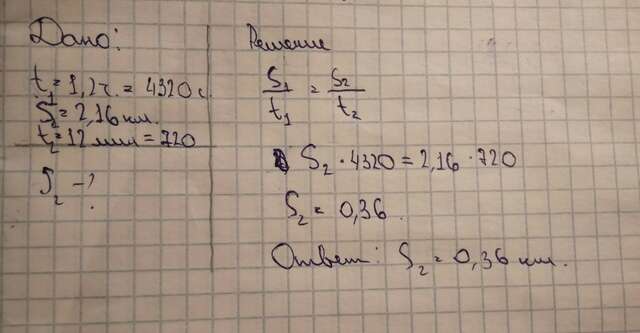 Дано:
t₁ = 1,2 ч. = 4320 с.
S₁ = 2,16 км.
t₂ = 12 мин = 720
S₂ - ?
Решение
S₁/t₁ = S₂/t₂
S₂ · 4320 = 2,16 · 720
S₂ = 0,36.
Ответ: S₂ = 0,36 км.